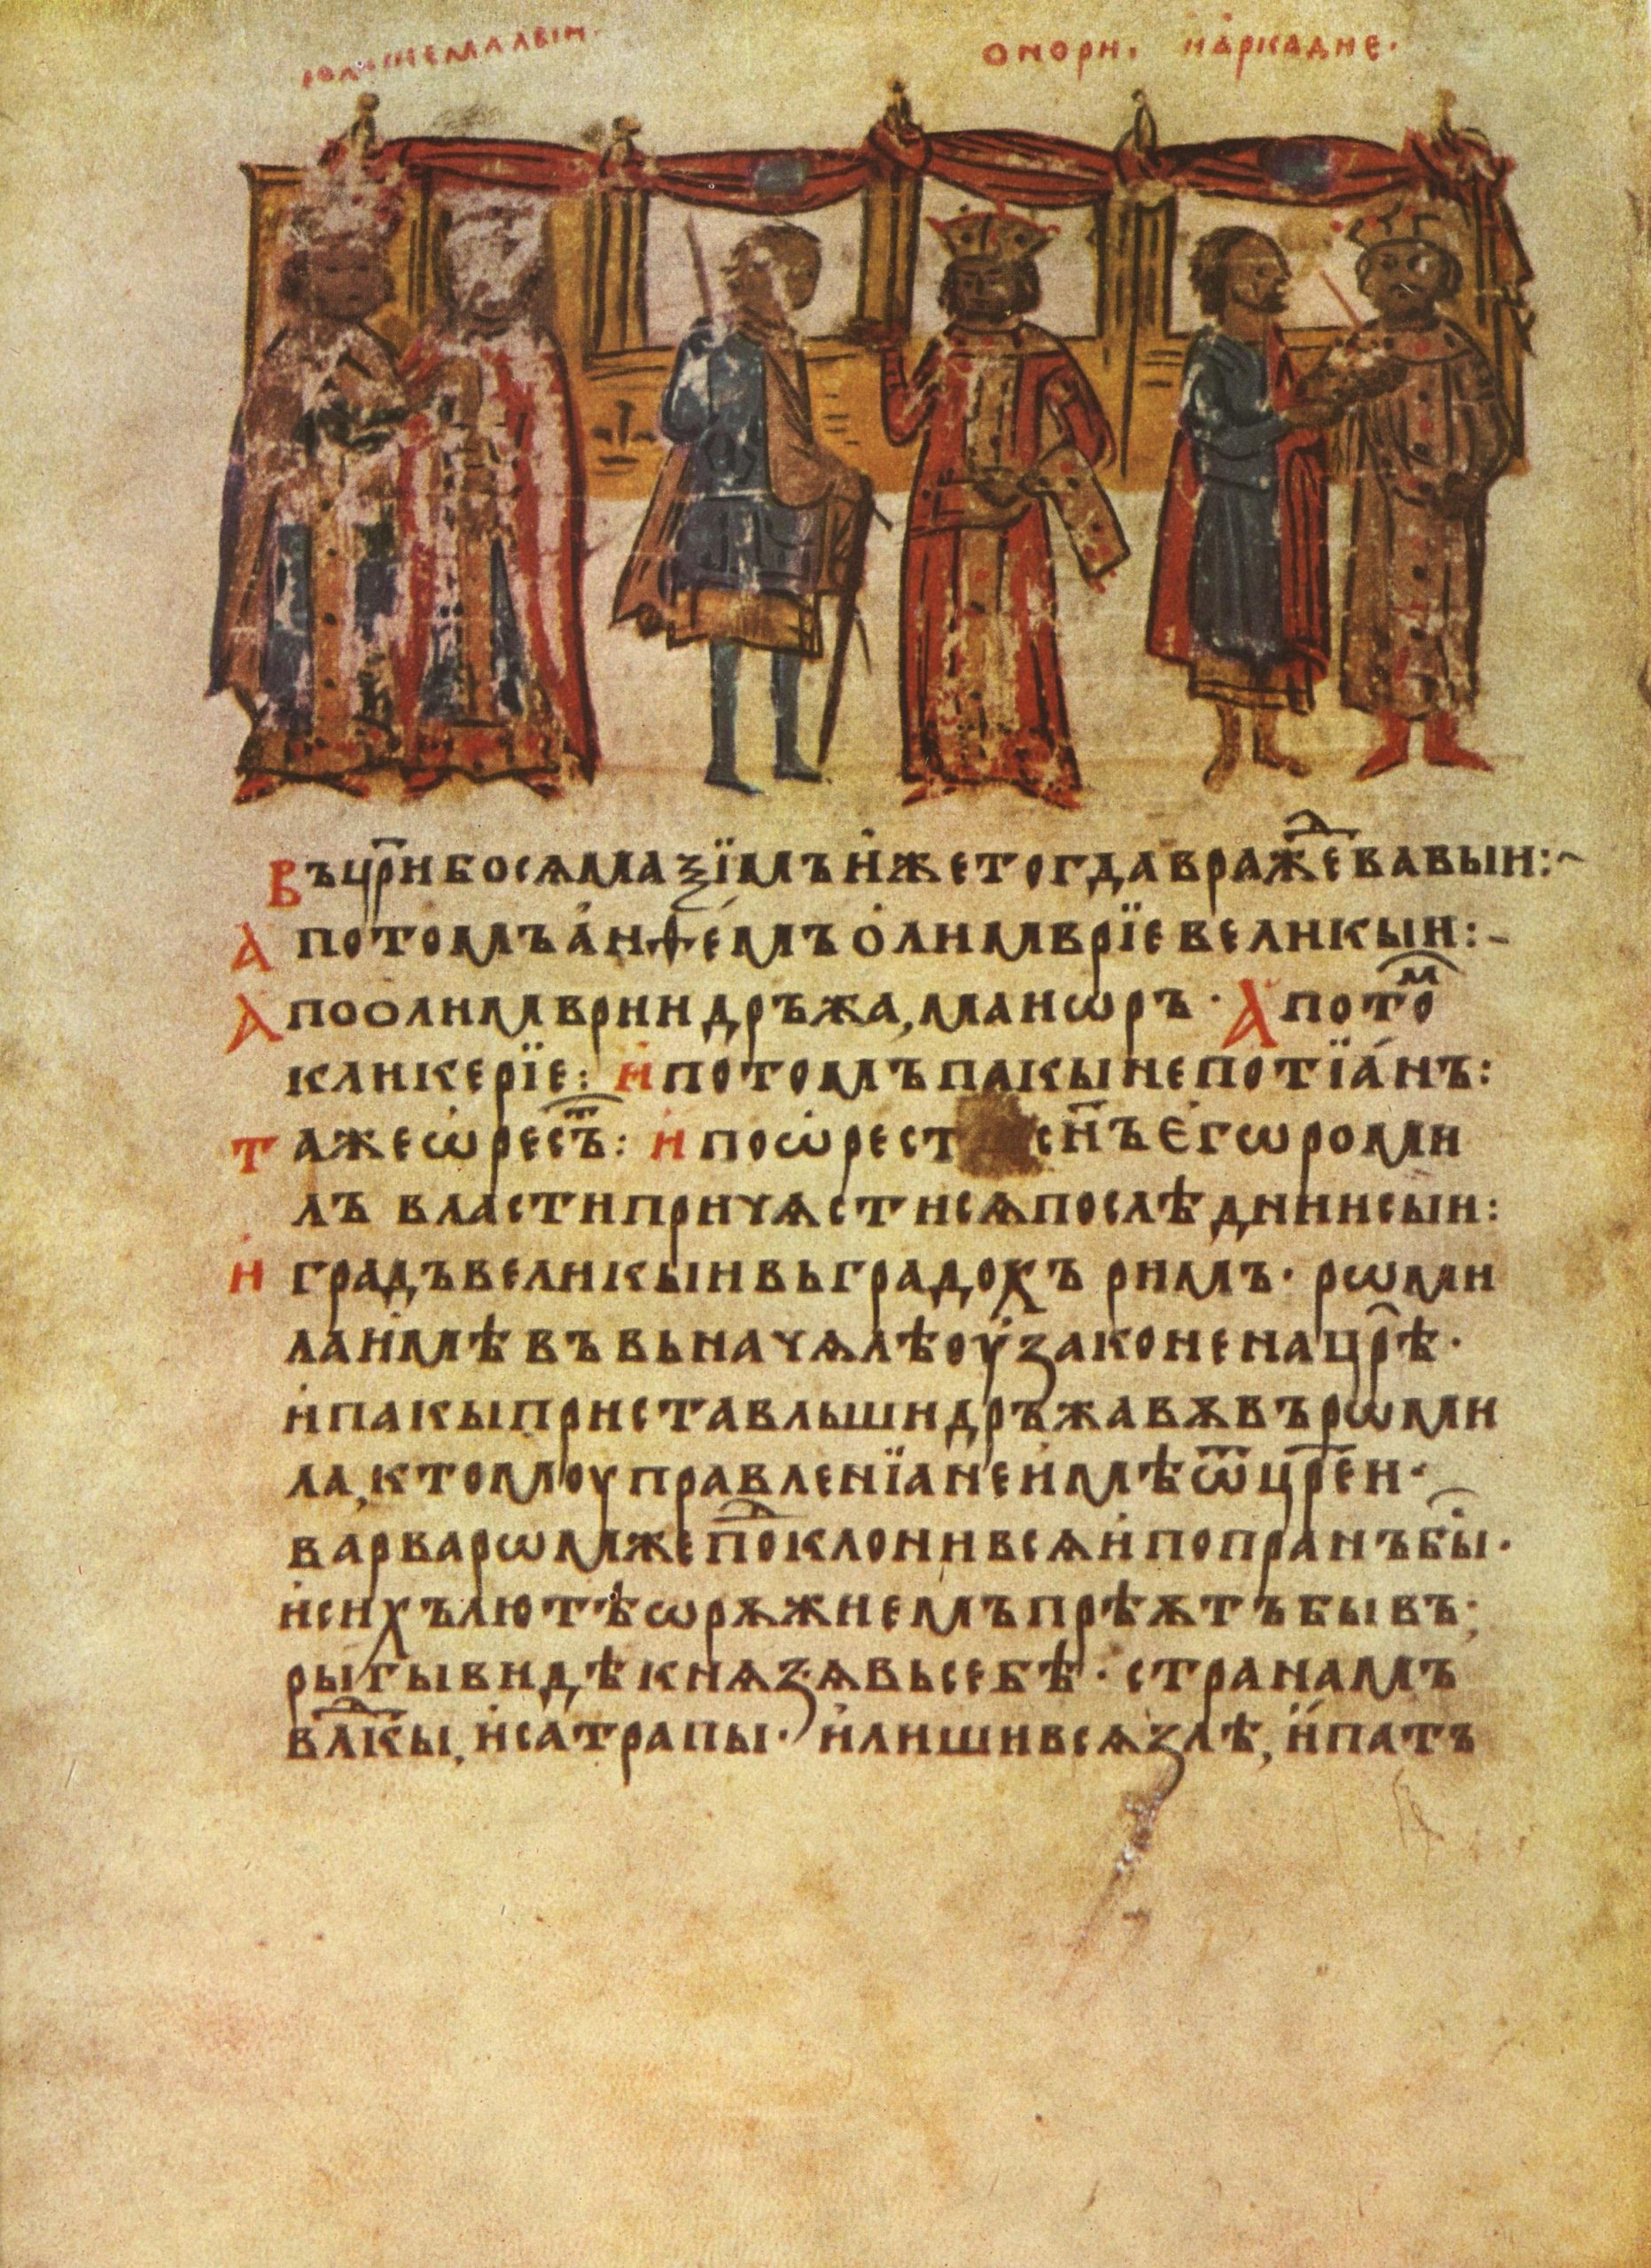 онорн. наркадне.
Въцр҃нбосѧмаѯїмъи҆жетогдавраже҃ⷣвавын:~
Апотомъа҆нѳе́мъо҆лнмврїевелнкын:~
Апоолнмврнндръжа,манѡръ· Апото҃ⷨ
клнкерїе: и҆потомъпакынепотїа́нъ:
тажеѡ҆рес҃ⷮъ: и҆поѡ҆рест сн҃ъе҆гѡромн
лъ властнпрнчѧстнсѧпослѣднннсын:
и҆ градъвелнкынвьградохъ рнмъ· рѡмн
лаи҆мѣвъвьначѧлѣоу҆законенацр҃ѣ·
и҆пакыпрнставльшндръжавѫвърѡмн
ла,ктомоуправленїанеи҆мѣѿцр҃ен·
варварѡмжепо҃ⷣклоннвсѧи҆попранъбы҃·
и҆снхълютѣѡрѫжнемъпрѣѫтъбывъ;
рыгывндѣкнѧзѧвьсебѣ· странамъ
вл҃ⷣкы,и҆сатрапы· и҆лншнвсѧзлѣ,и҆патъ